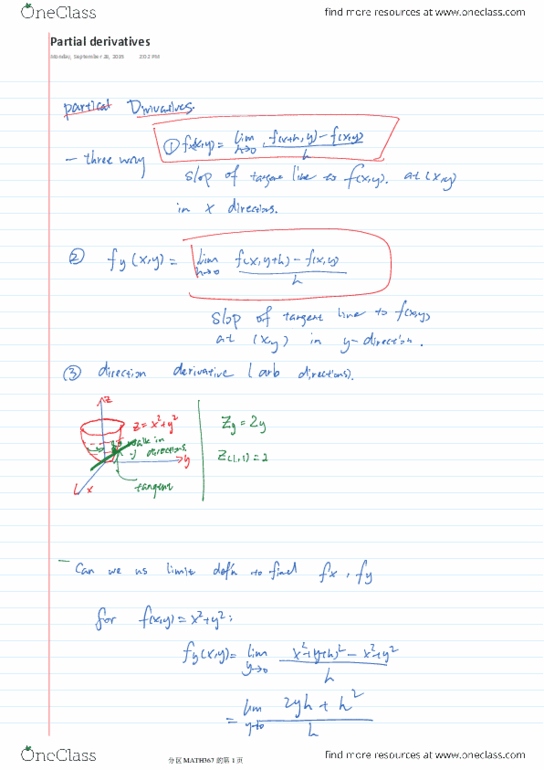 OneClass
find more resources at www.oneclass.com
Partial derivatives
Monday, September 28, 2015 2:02 PM
partical Dirivatives.
- three way ① fx(x,y) = lim h→0 f(x+h,y) - f(x,y) / h
slop of tangent line to f(x,y). at (x,y)
in x directions.
② fy (x,y) = lim h→0 f(x,y+h) - f(x,y) / h
slop of tangent line to f(x,y)
at (x,y) in y-direction.
③ direction derivative (arb directions).
z
z = x²+y²
walk in
y directions
y
x
tangent
Zy = 2y
Z(1,1) = 2
- Can we us limit defn to find fx, fy
for f(x,y) = x²+y²:
fy(x,y) = lim y→0 x²+(y+h)² - x²+y² / h
= lim y→0 2yh + h² / h
分区 MATH367 的第 1 页
OneClass
find more resources at www.oneclass.com